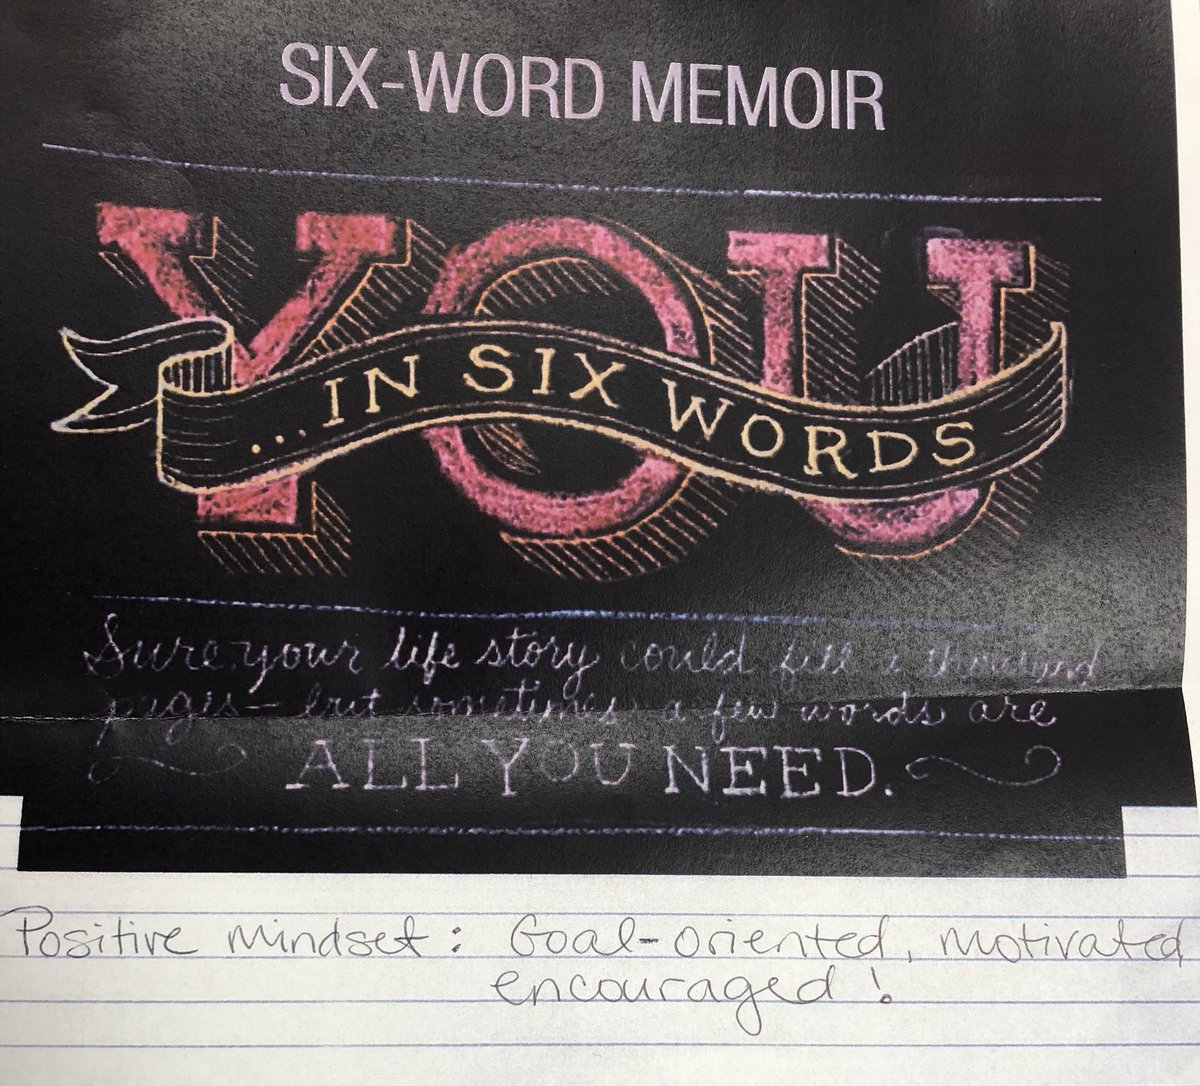 SIX-WORD MEMOIR
YOU
...IN SIX WORDS
Sure your life story could fill a thousand
pages— but sometimes a few words are
ALL YOU NEED.
Positive mindset: Goal-oriented, motivated
encouraged!